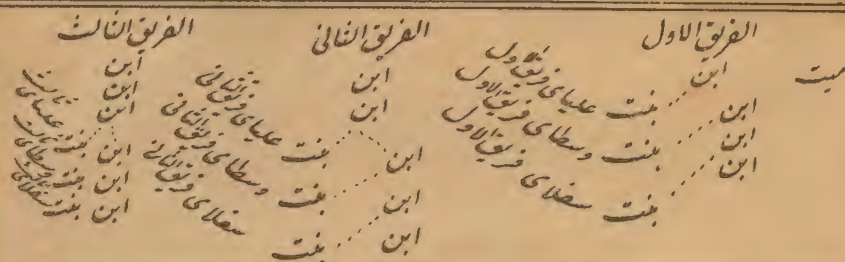 ميت
الفريق الاول
ابن
بنت علياى فريق اول
ابن
بنت وسطاى فريق الاول
ابن
ابن
بنت سفلاى فريق الاول
الفريق الثانى
ابن
ابن
بنت علياى فريق الثانى
ابن
بنت وسطاى فريق الثانى
ابن
بنت سفلاى فريق الثانى
ابن
الفريق الثالث
ابن
ابن
ابن
بنت علياى ثالث
ابن
بنت وسطاى ثالث
ابن
بنت سفلاى
ابن